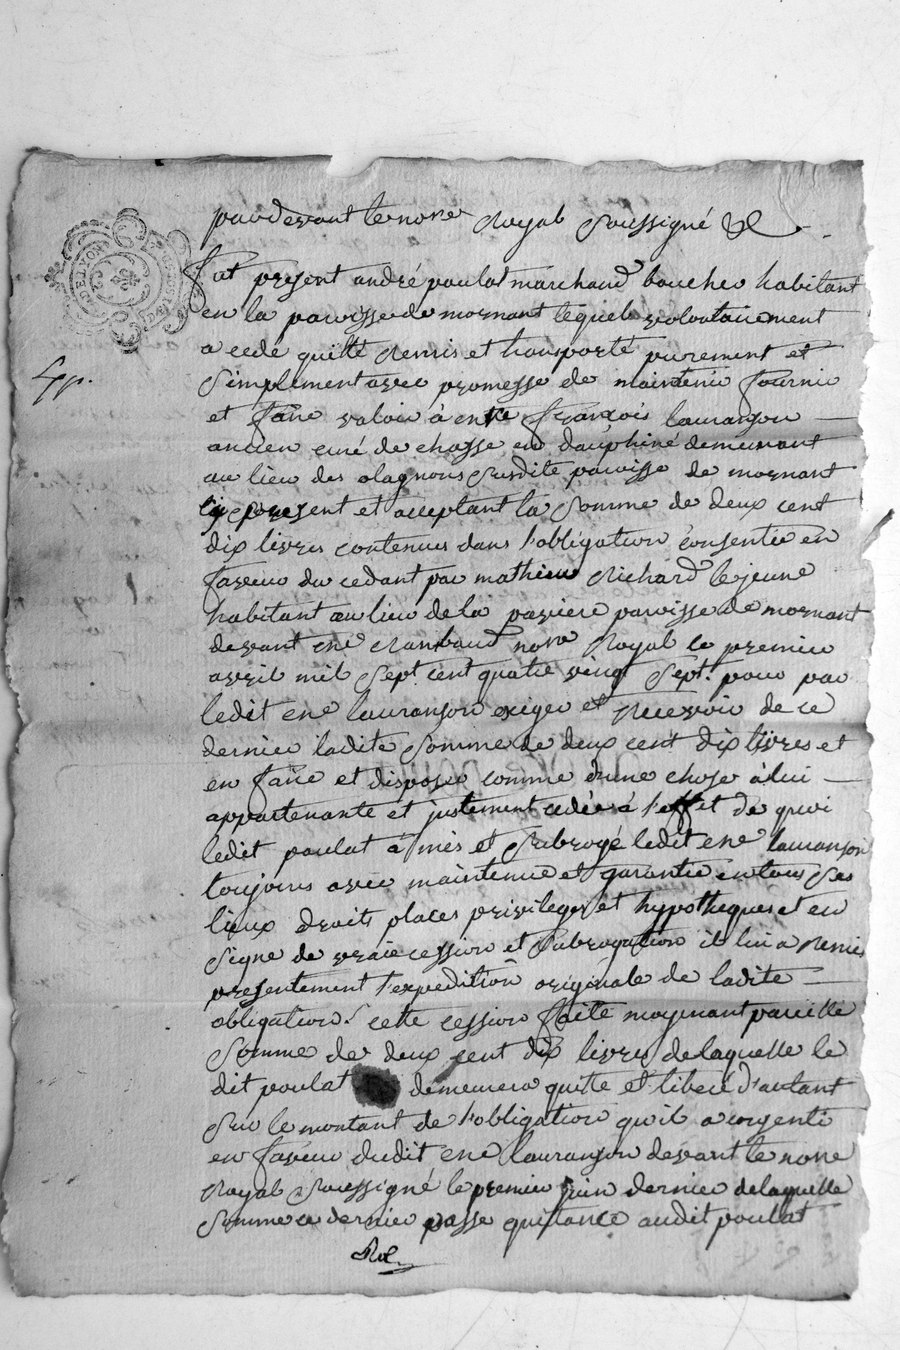 DE LYON
pardevant le nore Royal Soussigné
fut present andré poulat marchand boucher habitant
en la paroisse de mornant lequel volontairement
a cedé quitté Remis et transporté purement et
Simplement avec promesse de maintenir fournir
et faire valoir à françois lauranson
ancien curé de chasse en dauphiné demeurant
au lieu des olagnons Susdite paroisse de mornant
icy present et acceptant la Somme de deux cent
dix livres contenues dans l'obligation consentie en
faveur du cedant par mathieu Richard le jeune
habitant au lieu de la pariere paroisse de mornant
devant me Rambaud nore Royal le premier
avril mil Sept cent quatre vingt Sept. pour par
ledit lauranson exiger et Recevoir de ce
dernier ladite Somme de deux cent dix livres et
en faire et disposer comme d'une chose à lui
appartenante et justement cedée à l'effet de quoi
ledit poulat à mis et Subrogé ledit lauranson
toujours avec maintenue et garantie en tous Ses
lieux droits places privileges et hypotheques et en
Signe de vraie cession et Subrogation il lui a Remis
presentement l'expedition originale de ladite
obligation. cette cession faite moyenant pareille
Somme de deux cent dix livres de laquelle le
dit poulat demeurera quitte et liberé d'autant
Sur le montant de l'obligation qu'il a consenti
en faveur dudit lauranson devant le nore
Royal Soussigné le premier juin dernier de laquelle
Somme ce dernier passe quittance audit poulat